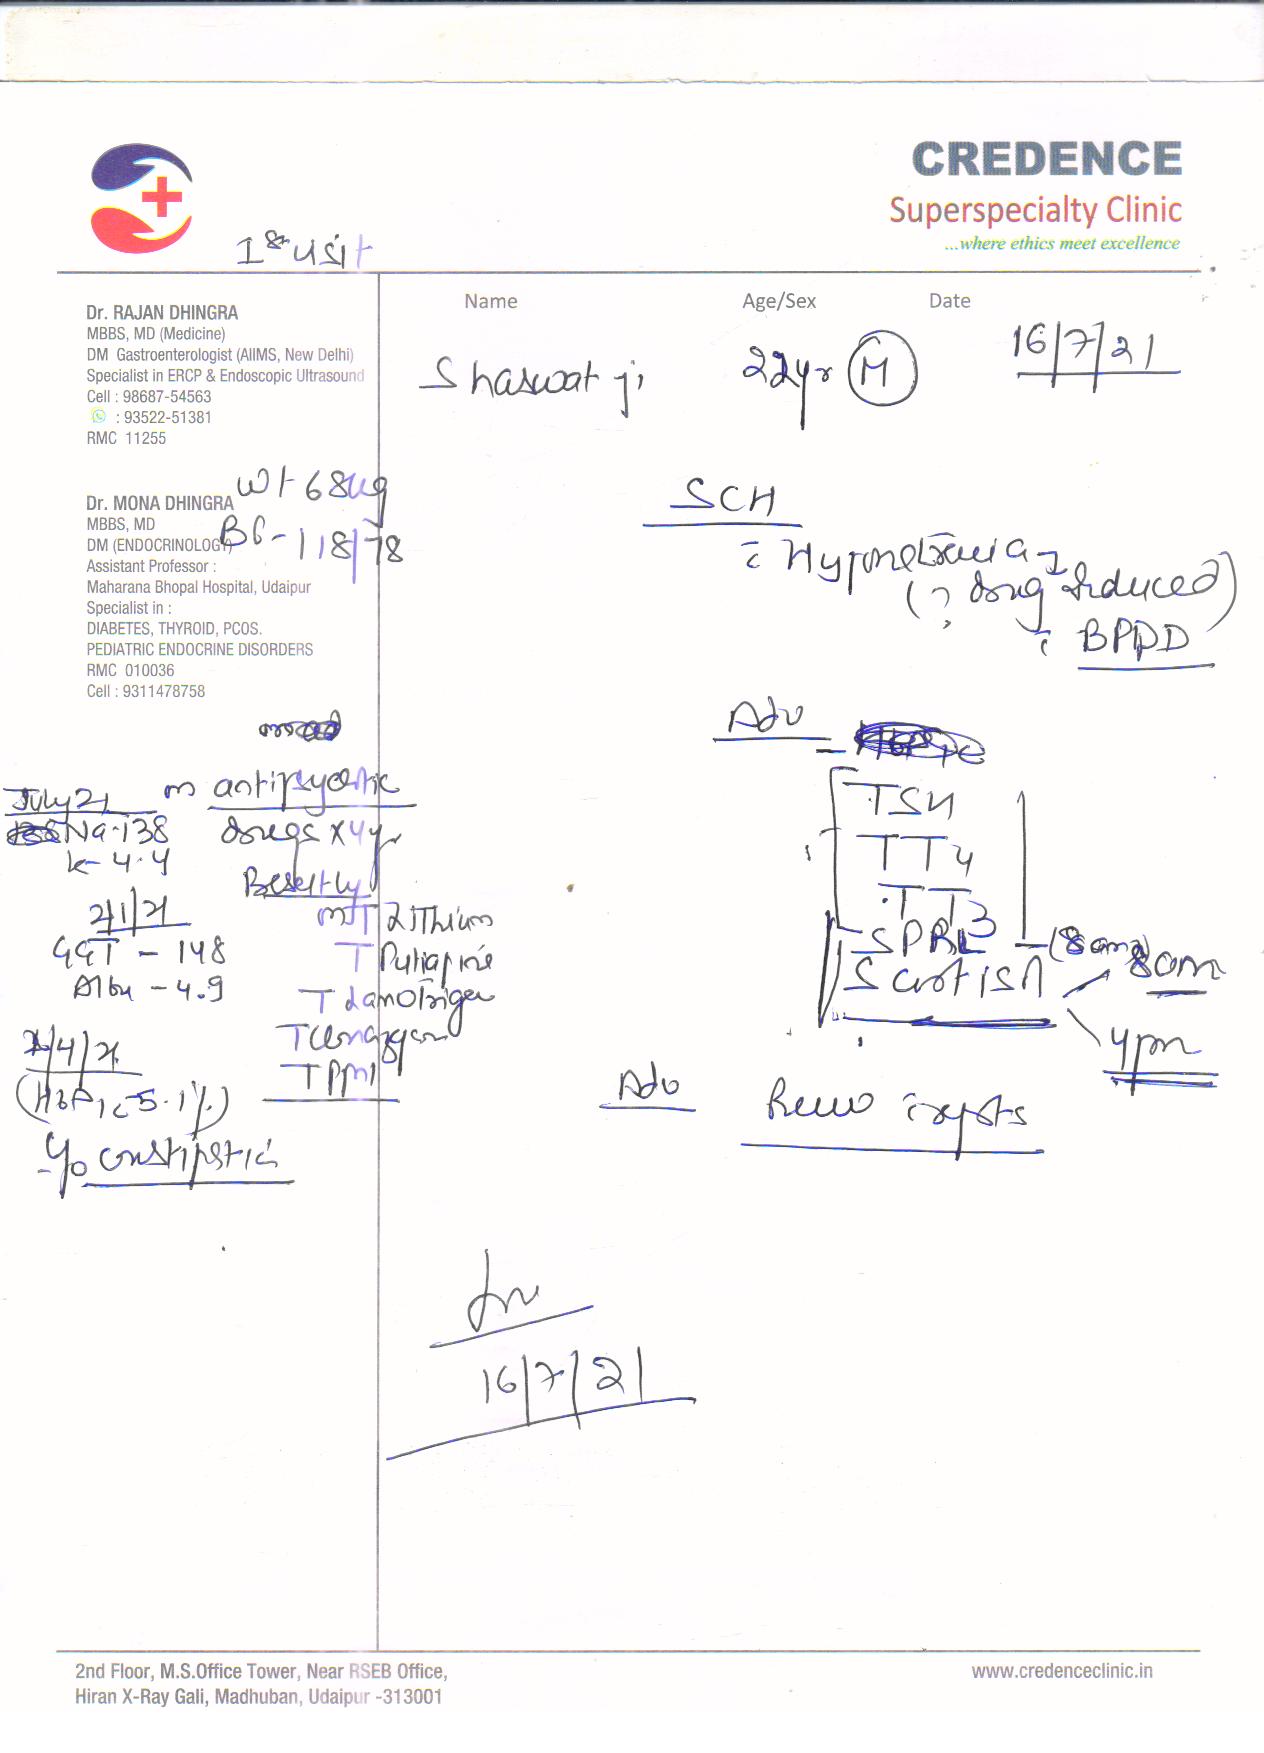 CREDENCE
Superspecialty Clinic
...where ethics meet excellence
1st visit
Name Age/Sex Date
Shaswat ji 22yr M 16/7/21
Dr. RAJAN DHINGRA
MBBS, MD (Medicine)
DM Gastroenterologist (AIIMS, New Delhi)
Specialist in ERCP & Endoscopic Ultrasound
Cell : 98687-54563
: 93522-51381
RMC 11255
Wt 68kg
Dr. MONA DHINGRA
MBBS, MD
DM (ENDOCRINOLOGY)
Assistant Professor :
Maharana Bhopal Hospital, Udaipur
Specialist in :
DIABETES, THYROID, PCOS.
PEDIATRIC ENDOCRINE DISORDERS
RMC 010036
Cell : 9311478758
118/78
SCH
(? drug induced)
BPPD
July 21
antipsychotic
drugs x 4y
Na-138
K- 4.4
GGT - 148
Albu - 4.9
T Lithium
T
T Lamotrigen
T
T
(HbA1c 5.1%)
constipation
Adv
TSH
TT4
TT3
S PRL (8am)
S cortisol 8am
4pm
Adv Review
16/7/21
2nd Floor, M.S.Office Tower, Near RSEB Office,
Hiran X-Ray Gali, Madhuban, Udaipur -313001
www.credenceclinic.in